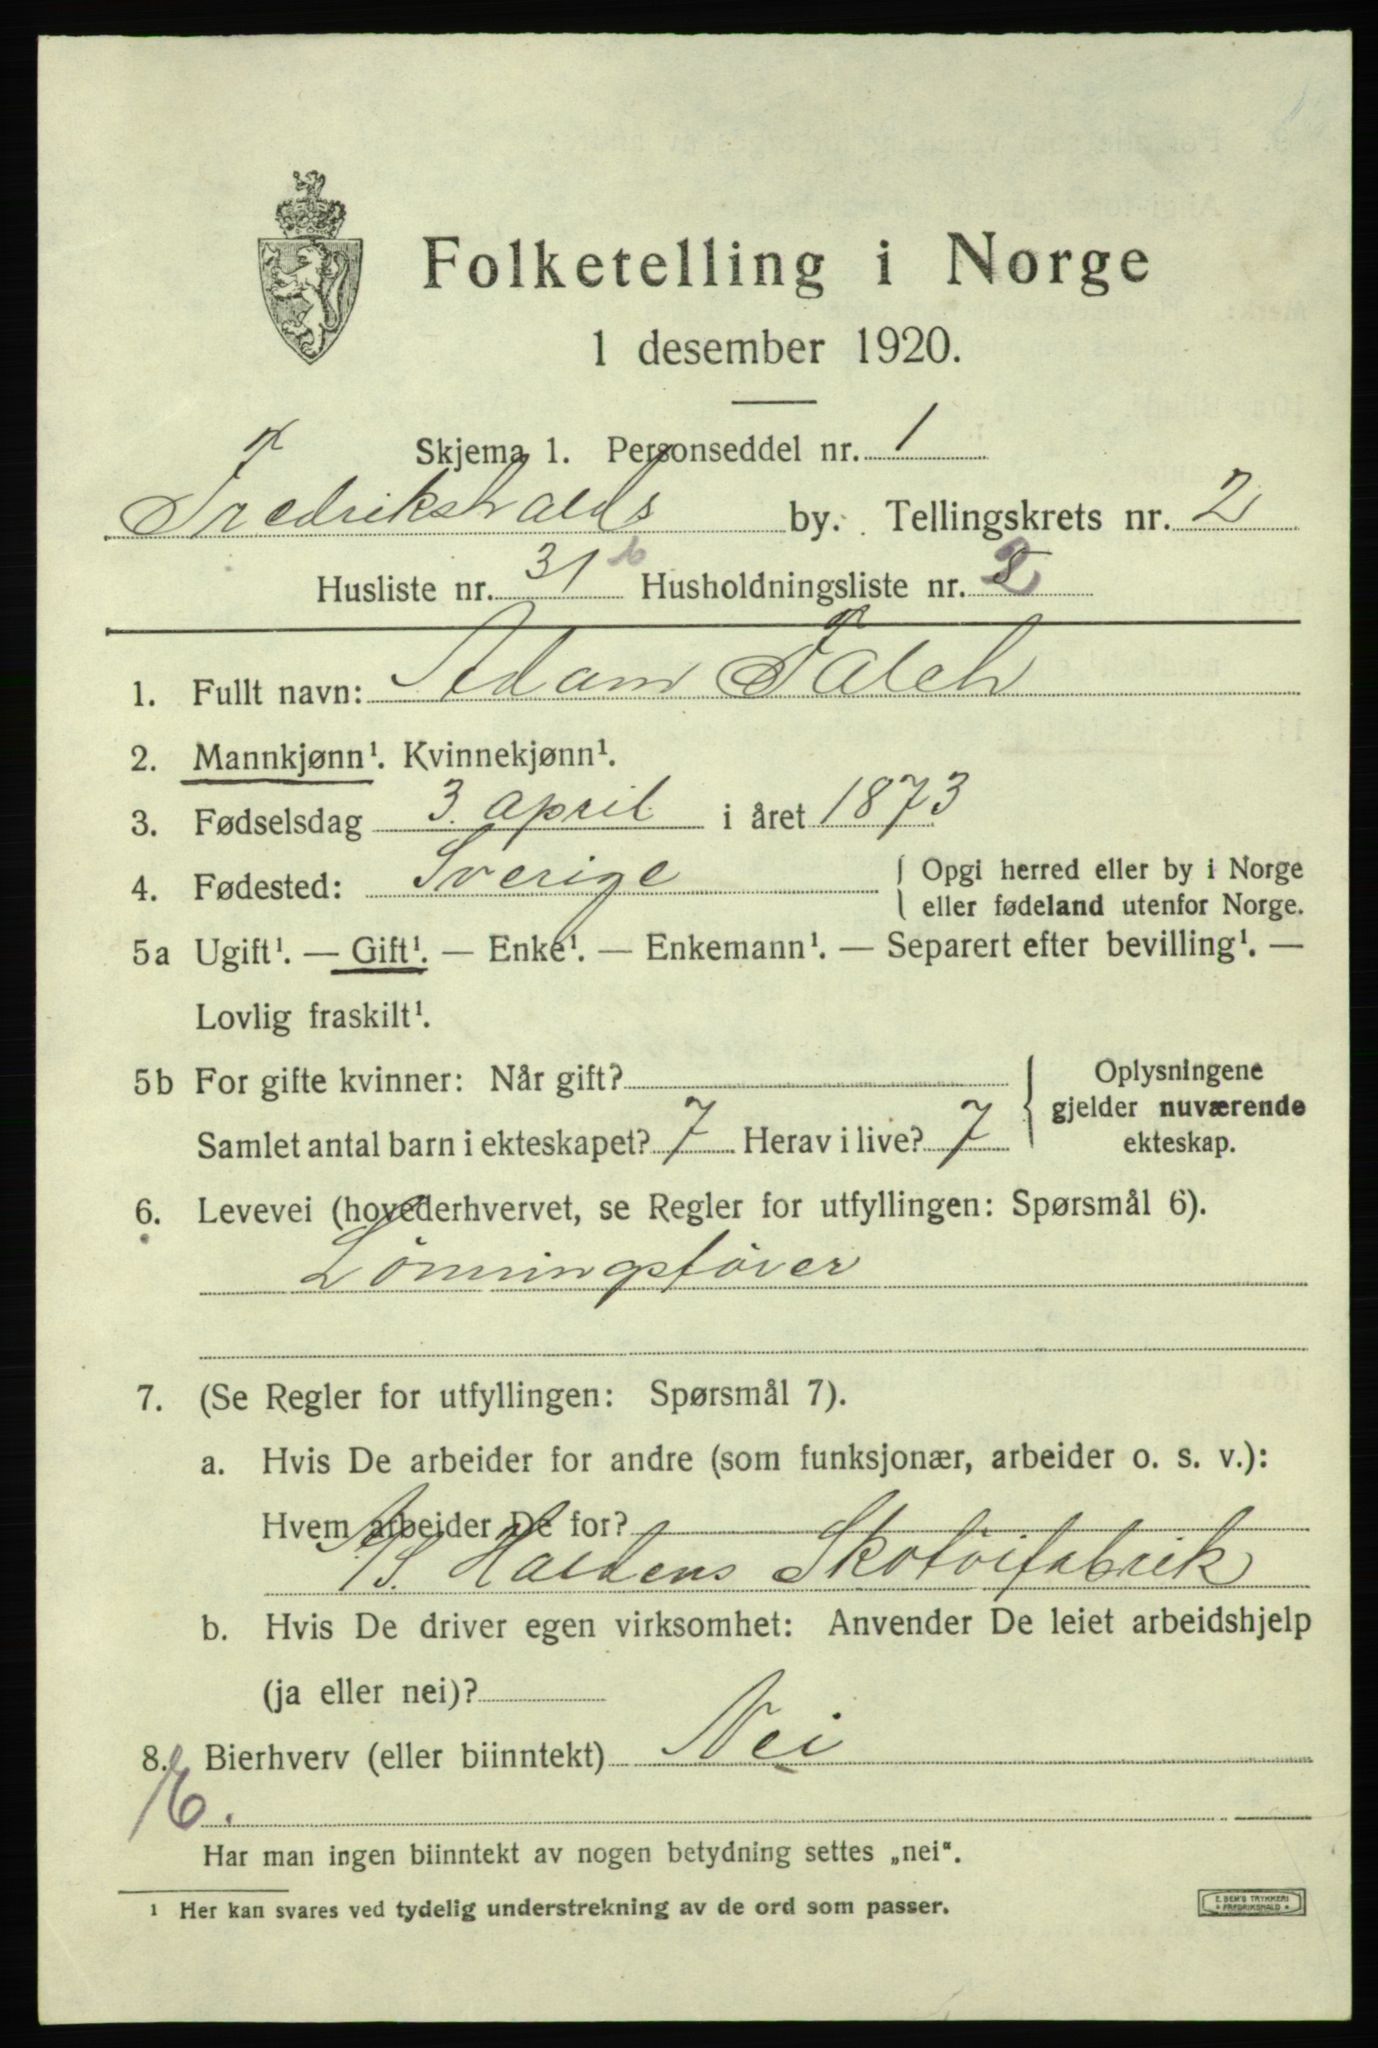 Folketelling i Norge
1 desember 1920.
Skjema 1. Personseddel nr. 1
Fredrikshalds by. Tellingskrets nr. 2
Husliste nr. 31 b Husholdningsliste nr. 2
1. Fullt navn: Adam Falch
2. Mannkjønn¹. Kvinnekjønn¹.
3. Fødselsdag 3. april i året 1873
4. Fødested: Sverige { Opgi herred eller by i Norge
eller fødeland utenfor Norge.
5a Ugift¹. — Gift¹. — Enke¹. — Enkemann¹. — Separert efter bevilling¹. —
Lovlig fraskilt¹.
5b For gifte kvinner: Når gift? Oplysningene
gjelder nuværende
Samlet antal barn i ekteskapet? 7 Herav i live? 7 ekteskap.
6. Levevei (hovederhvervet, se Regler for utfyllingen: Spørsmål 6).
7. (Se Regler for utfyllingen: Spørsmål 7).
a. Hvis De arbeider for andre (som funksjonær, arbeider o. s. v.):
Hvem arbeider De for?
A/S. Haldens Skotöifabrik
b. Hvis De driver egen virksomhet: Anvender De leiet arbeidshjelp
(ja eller nei)?
8. Bierhverv (eller biinntekt) Nei
E.
Har man ingen biinntekt av nogen betydning settes „nei“.
¹ Her kan svares ved tydelig understrekning av de ord som passer.
E. SEM'S TRYKKERI
• FREDRIKSHALD •